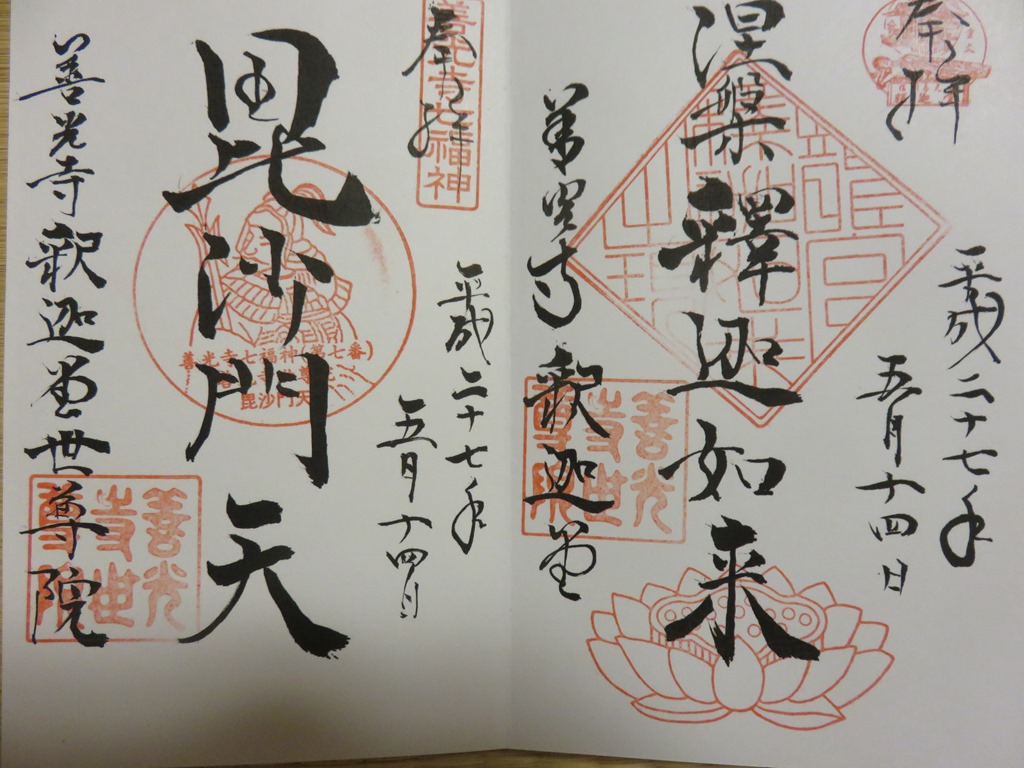 奉拝
平成二十七年
五月十四日
涅槃釋迦如来
善光寺釈迦堂
善光
寺世
尊院
善光寺七福神
奉拝
平成二十七年
五月十四日
毘沙門天
善光寺七福神(第七番)
毘沙門天
善光寺釈迦堂世尊院
善光
寺世
尊院